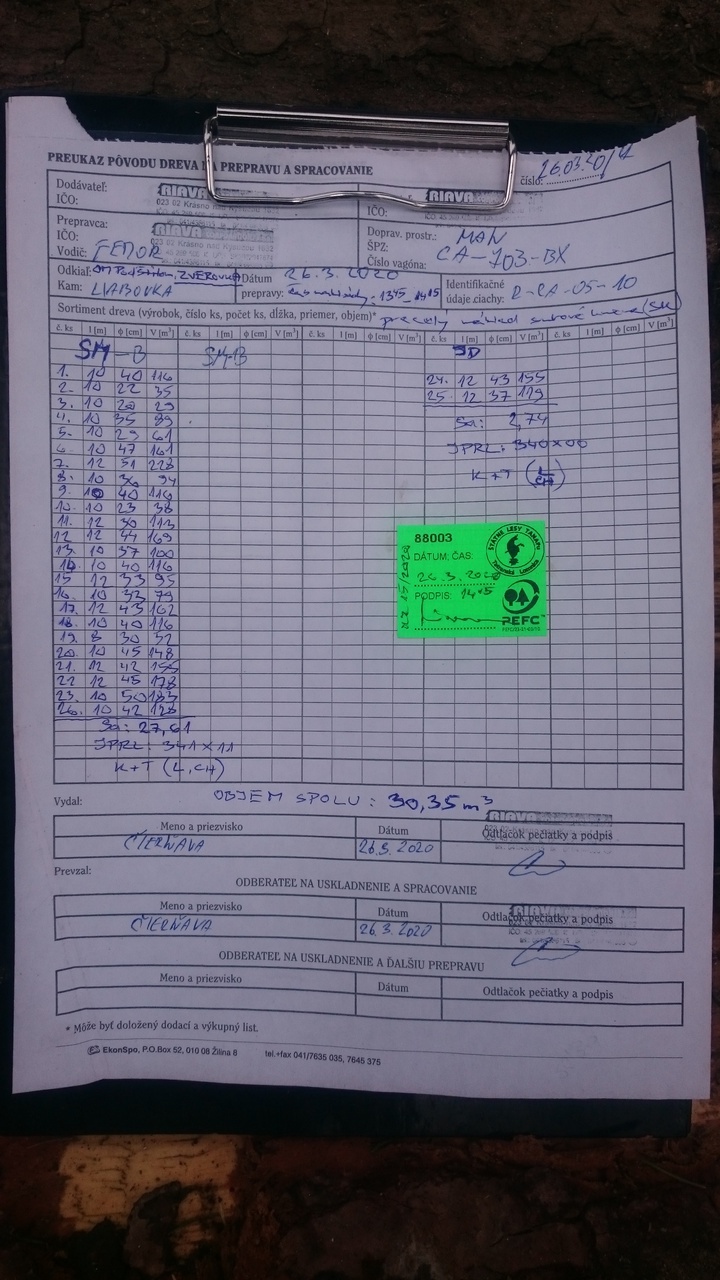 PREUKAZ PÔVODU DREVA NA PREPRAVU A SPRACOVANIE
číslo: 26.03.20/4
Dodávateľ: RIAVA
IČO: 023 02 Krásno nad Kysucou
RIAVA
IČO:
Prepravca: RIAVA
IČO: 023 02 Krásno nad Kysucou
Vodič: FEMOR
Doprav. prostr.: MAN
ŠPZ:
Číslo vagóna: CA-703-BX
Odkiaľ: ZVEROVKA
Kam: ĽUBOVKA
Dátum 26.3.2020
prepravy: 1345 - 1415
Identifikačné
údaje ciachy: R-CA-05-10
Sortiment dreva (výrobok, číslo ks, počet ks, dĺžka, priemer, objem)*
č. ks l [m] ϕ [cm] V [m³] č. ks l [m] ϕ [cm] V [m³] č. ks l [m] ϕ [cm] V [m³] č. ks l [m] ϕ [cm] V [m³] č. ks l [m] ϕ [cm] V [m³]
SM-B SM-B
1. 10 40 116
2. 10 22 35
3. 10 20 29
4. 10 35 89
5. 10 29 61
6. 10 47 161
7. 12 51 228
8. 10 36 94
9. 10 40 116
10. 10 23 38
11. 12 36 113
12 12 44 169
13. 10 37 100
14. 10 40 116
15 12 33 95
16. 10 33 79
17. 12 43 162
18. 10 40 116
19 8 30 52
20. 10 45 148
21. 12 42 155
22 12 45 178
23. 10 50 183
26. 10 42 128
Sa: 27,61
JPRL: 341 x 11
K+T (L,CH)
24. 12 43 155
25. 12 37 119
Sa: 2,74
JPRL: 340x00
K+T
88003
DÁTUM; ČAS:
26.3.2020
PODPIS: 1415
ŠTÁTNE LESY TANAPU
Tatranská Lomnica
PEFC
OBJEM SPOLU: 30,35 m³
Vydal:
Meno a priezvisko Dátum Odtlačok pečiatky a podpis
ČIERŇAVA 26.3.2020 RIAVA
Prevzal:
ODBERATEĽ NA USKLADNENIE A SPRACOVANIE
Meno a priezvisko Dátum Odtlačok pečiatky a podpis
ČIERŇAVA 26.3.2020 RIAVA
ODBERATEĽ NA USKLADNENIE A ĎALŠIU PREPRAVU
Meno a priezvisko Dátum Odtlačok pečiatky a podpis
* Môže byť doložený dodací a výkupný list.
EkonSpo, P.O.Box 52, 010 08 Žilina 8 tel.+fax 041/7635 035, 7645 375